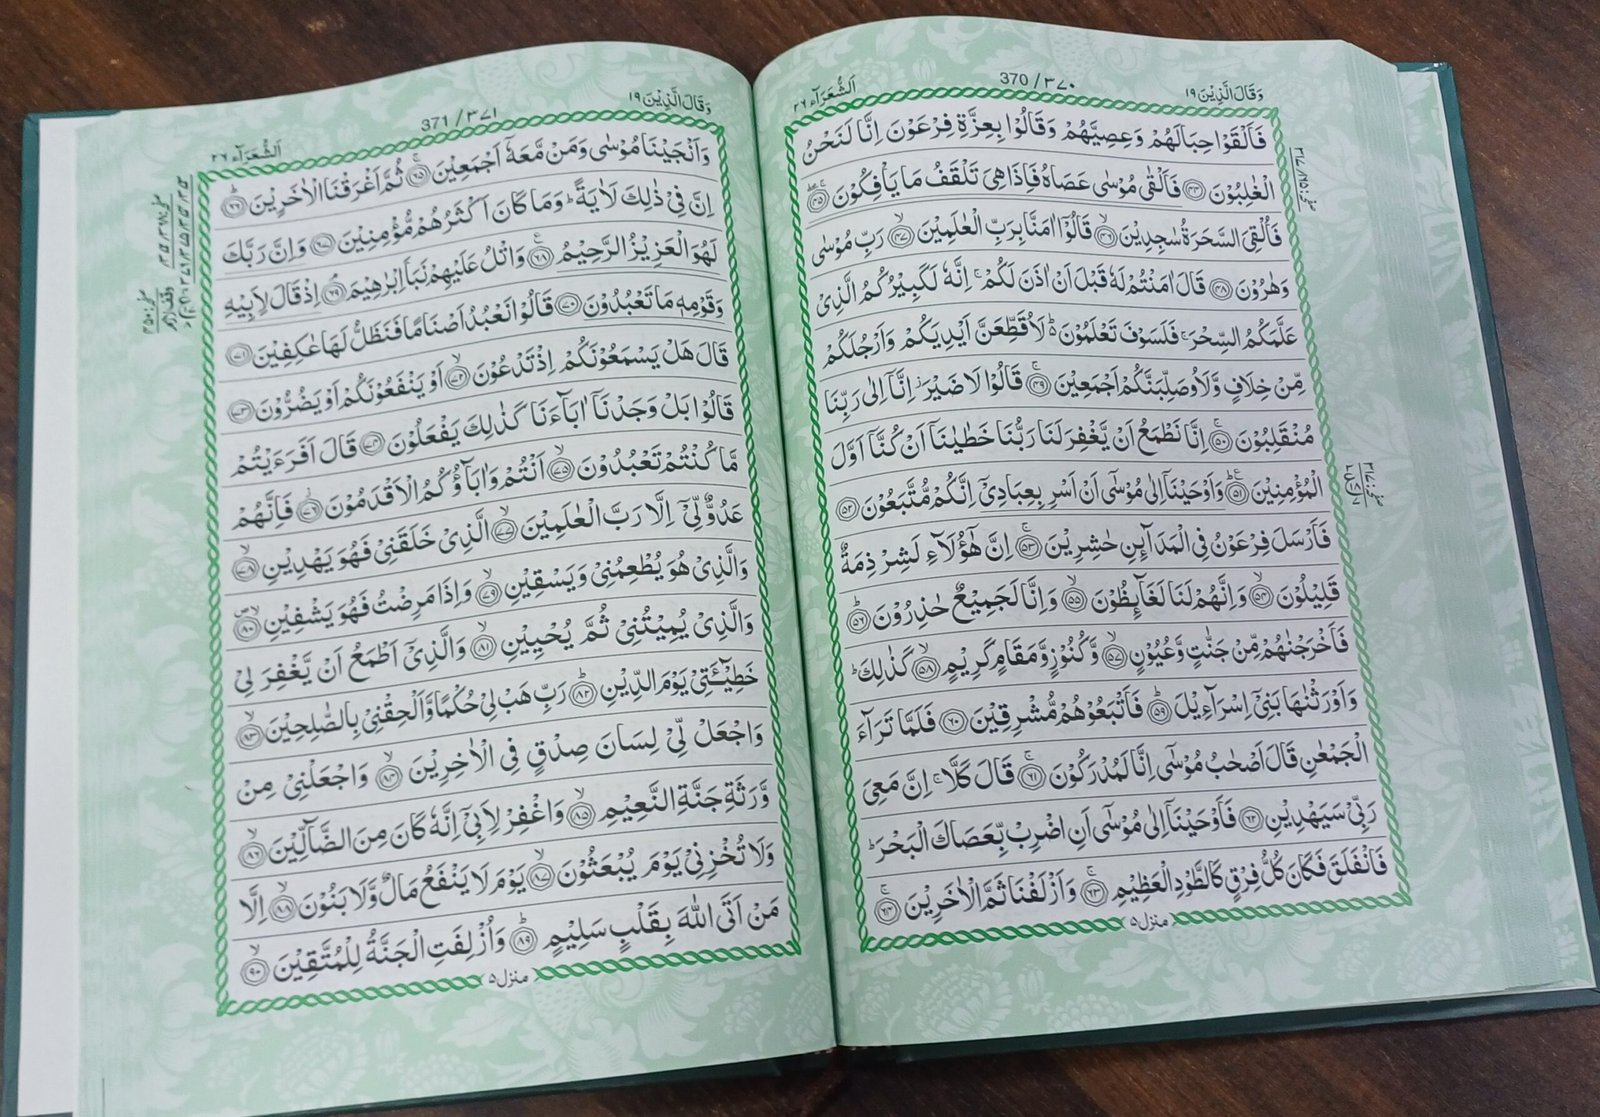 وَقَالَ الَّذِيْنَ ١٩
370 / ٣٧٠
اَلشُّعَرَآء ٢٦
فَاَلْقَوْا حِبَالَهُمْ وَعِصِيَّهُمْ وَقَالُوْا بِعِزَّةِ فِرْعَوْنَ اِنَّا لَنَحْنُ
الْغٰلِبُوْنَ ﴿٤٤﴾ فَاَلْقٰى مُوْسٰى عَصَاهُ فَاِذَا هِىَ تَلْقَفُ مَا يَاْفِكُوْنَ ﴿٤٥﴾
فَاُلْقِىَ السَّحَرَةُ سٰجِدِيْنَ ﴿٤٦﴾ قَالُوْۤا اٰمَنَّا بِرَبِّ الْعٰلَمِيْنَ ﴿٤٧﴾ رَبِّ مُوْسٰى
وَهٰرُوْنَ ﴿٤٨﴾ قَالَ اٰمَنْتُمْ لَهٗ قَبْلَ اَنْ اٰذَنَ لَكُمْ ۚ اِنَّهٗ لَكَبِيْرُكُمُ الَّذِىْ
عَلَّمَكُمُ السِّحْرَ ۚ فَلَسَوْفَ تَعْلَمُوْنَ ؕ لَاُقَطِّعَنَّ اَيْدِيَكُمْ وَاَرْجُلَكُمْ
مِّنْ خِلَافٍ وَّلَاُوصَلِّبَنَّكُمْ اَجْمَعِيْنَ ﴿٤٩﴾ قَالُوْا لَا ضَيْرَ ؗ اِنَّاۤ اِلٰى رَبِّنَا
مُنْقَلِبُوْنَ ﴿٥٠﴾ اِنَّا نَطْمَعُ اَنْ يَّغْفِرَ لَنَا رَبُّنَا خَطٰيٰنَاۤ اَنْ كُنَّاۤ اَوَّلَ
الْمُؤْمِنِيْنَ ﴿٥١﴾ وَاَوْحَيْنَاۤ اِلٰى مُوْسٰٓى اَنْ اَسْرِ بِعِبَادِىْۤ اِنَّكُمْ مُّتَّبَعُوْنَ ﴿٥٢﴾
فَاَرْسَلَ فِرْعَوْنُ فِى الْمَدَآئِنِ حٰشِرِيْنَ ﴿٥٣﴾ اِنَّ هٰٓؤُلَآءِ لَشِرْذِمَةٌ
قَلِيْلُوْنَ ﴿٥٤﴾ وَاِنَّهُمْ لَنَا لَغَآئِظُوْنَ ﴿٥٥﴾ وَاِنَّا لَجَمِيْعٌ حٰذِرُوْنَ ﴿٥٦﴾
فَاَخْرَجْنٰهُمْ مِّنْ جَنّٰتٍ وَّعُيُوْنٍ ﴿٥٧﴾ وَّكُنُوْزٍ وَّمَقَامٍ كَرِيْمٍ ﴿٥٨﴾ كَذٰلِكَ ؕ
وَاَوْرَثْنٰهَا بَنِىْۤ اِسْرَآءِيْلَ ﴿٥٩﴾ فَاَتْبَعُوْهُمْ مُّشْرِقِيْنَ ﴿٦٠﴾ فَلَمَّا تَرَآءَ
الْجَمْعٰنِ قَالَ اَصْحٰبُ مُوْسٰٓى اِنَّا لَمُدْرَكُوْنَ ﴿٦١﴾ قَالَ كَلَّا ۚ اِنَّ مَعِىَ
رَبِّىْ سَيَهْدِيْنِ ﴿٦٢﴾ فَاَوْحَيْنَاۤ اِلٰى مُوْسٰٓى اَنِ اضْرِبْ بِّعَصَاكَ الْبَحْرَ ؕ
فَانْفَلَقَ فَكَانَ كُلُّ فِرْقٍ كَالطَّوْدِ الْعَظِيْمِ ﴿٦٣﴾ وَاَزْلَفْنَا ثَمَّ الْاٰخَرِيْنَ ﴿٦٤﴾
منزل ٥
وَقَالَ الَّذِيْنَ ١٩
371 / ٣٧١
اَلشُّعَرَآء ٢٦
وَاَنْجَيْنَا مُوْسٰى وَمَنْ مَّعَهٗۤ اَجْمَعِيْنَ ﴿٦٥﴾ ثُمَّ اَغْرَقْنَا الْاٰخَرِيْنَ ﴿٦٦﴾
اِنَّ فِىْ ذٰلِكَ لَاٰيَةً ؕ وَمَا كَانَ اَكْثَرُهُمْ مُّؤْمِنِيْنَ ﴿٦٧﴾ وَاِنَّ رَبَّكَ
لَهُوَ الْعَزِيْزُ الرَّحِيْمُ ﴿٦٨﴾ وَاتْلُ عَلَيْهِمْ نَبَاَ اِبْرٰهِيْمَ ﴿٦٩﴾ اِذْ قَالَ لِاَبِيْهِ
وَقَوْمِهٖ مَا تَعْبُدُوْنَ ﴿٧٠﴾ قَالُوْا نَعْبُدُ اَصْنَامًا فَنَظَلُّ لَهَا عٰكِفِيْنَ ﴿٧١﴾
قَالَ هَلْ يَسْمَعُوْنَكُمْ اِذْ تَدْعُوْنَ ﴿٧٢﴾ اَوْ يَنْفَعُوْنَكُمْ اَوْ يَضُرُّوْنَ ﴿٧٣﴾
قَالُوْا بَلْ وَجَدْنَاۤ اٰبَآءَنَا كَذٰلِكَ يَفْعَلُوْنَ ﴿٧٤﴾ قَالَ اَفَرَءَيْتُمْ
مَّا كُنْتُمْ تَعْبُدُوْنَ ﴿٧٥﴾ اَنْتُمْ وَاٰبَآؤُكُمُ الْاَقْدَمُوْنَ ﴿٧٦﴾ فَاِنَّهُمْ
عَدُوٌّ لِّىْۤ اِلَّا رَبَّ الْعٰلَمِيْنَ ﴿٧٧﴾ الَّذِىْ خَلَقَنِىْ فَهُوَ يَهْدِيْنِ ﴿٧٨﴾
وَالَّذِىْ هُوَ يُطْعِمُنِىْ وَيَسْقِيْنِ ﴿٧٩﴾ وَاِذَا مَرِضْتُ فَهُوَ يَشْفِيْنِ ﴿٨٠﴾
وَالَّذِىْ يُمِيْتُنِىْ ثُمَّ يُحْيِيْنِ ﴿٨١﴾ وَالَّذِىْۤ اَطْمَعُ اَنْ يَّغْفِرَ لِىْ
خَطِيْٓئَتِىْ يَوْمَ الدِّيْنِ ﴿٨٢﴾ رَبِّ هَبْ لِىْ حُكْمًا وَّاَلْحِقْنِىْ بِالصّٰلِحِيْنَ ﴿٨٣﴾
وَاجْعَلْ لِّىْ لِسَانَ صِدْقٍ فِى الْاٰخِرِيْنَ ﴿٨٤﴾ وَاجْعَلْنِىْ مِنْ
وَّرَثَةِ جَنَّةِ النَّعِيْمِ ﴿٨٥﴾ وَاغْفِرْ لِاَبِىْۤ اِنَّهٗ كَانَ مِنَ الضَّآلِّيْنَ ﴿٨٦﴾
وَلَا تُخْزِنِىْ يَوْمَ يُبْعَثُوْنَ ﴿٨٧﴾ يَوْمَ لَا يَنْفَعُ مَالٌ وَّلَا بَنُوْنَ ﴿٨٨﴾ اِلَّا
مَنْ اَتَى اللّٰهَ بِقَلْبٍ سَلِيْمٍ ﴿٨٩﴾ وَاُزْلِفَتِ الْجَنَّةُ لِلْمُتَّقِيْنَ ﴿٩٠﴾
منزل ٥